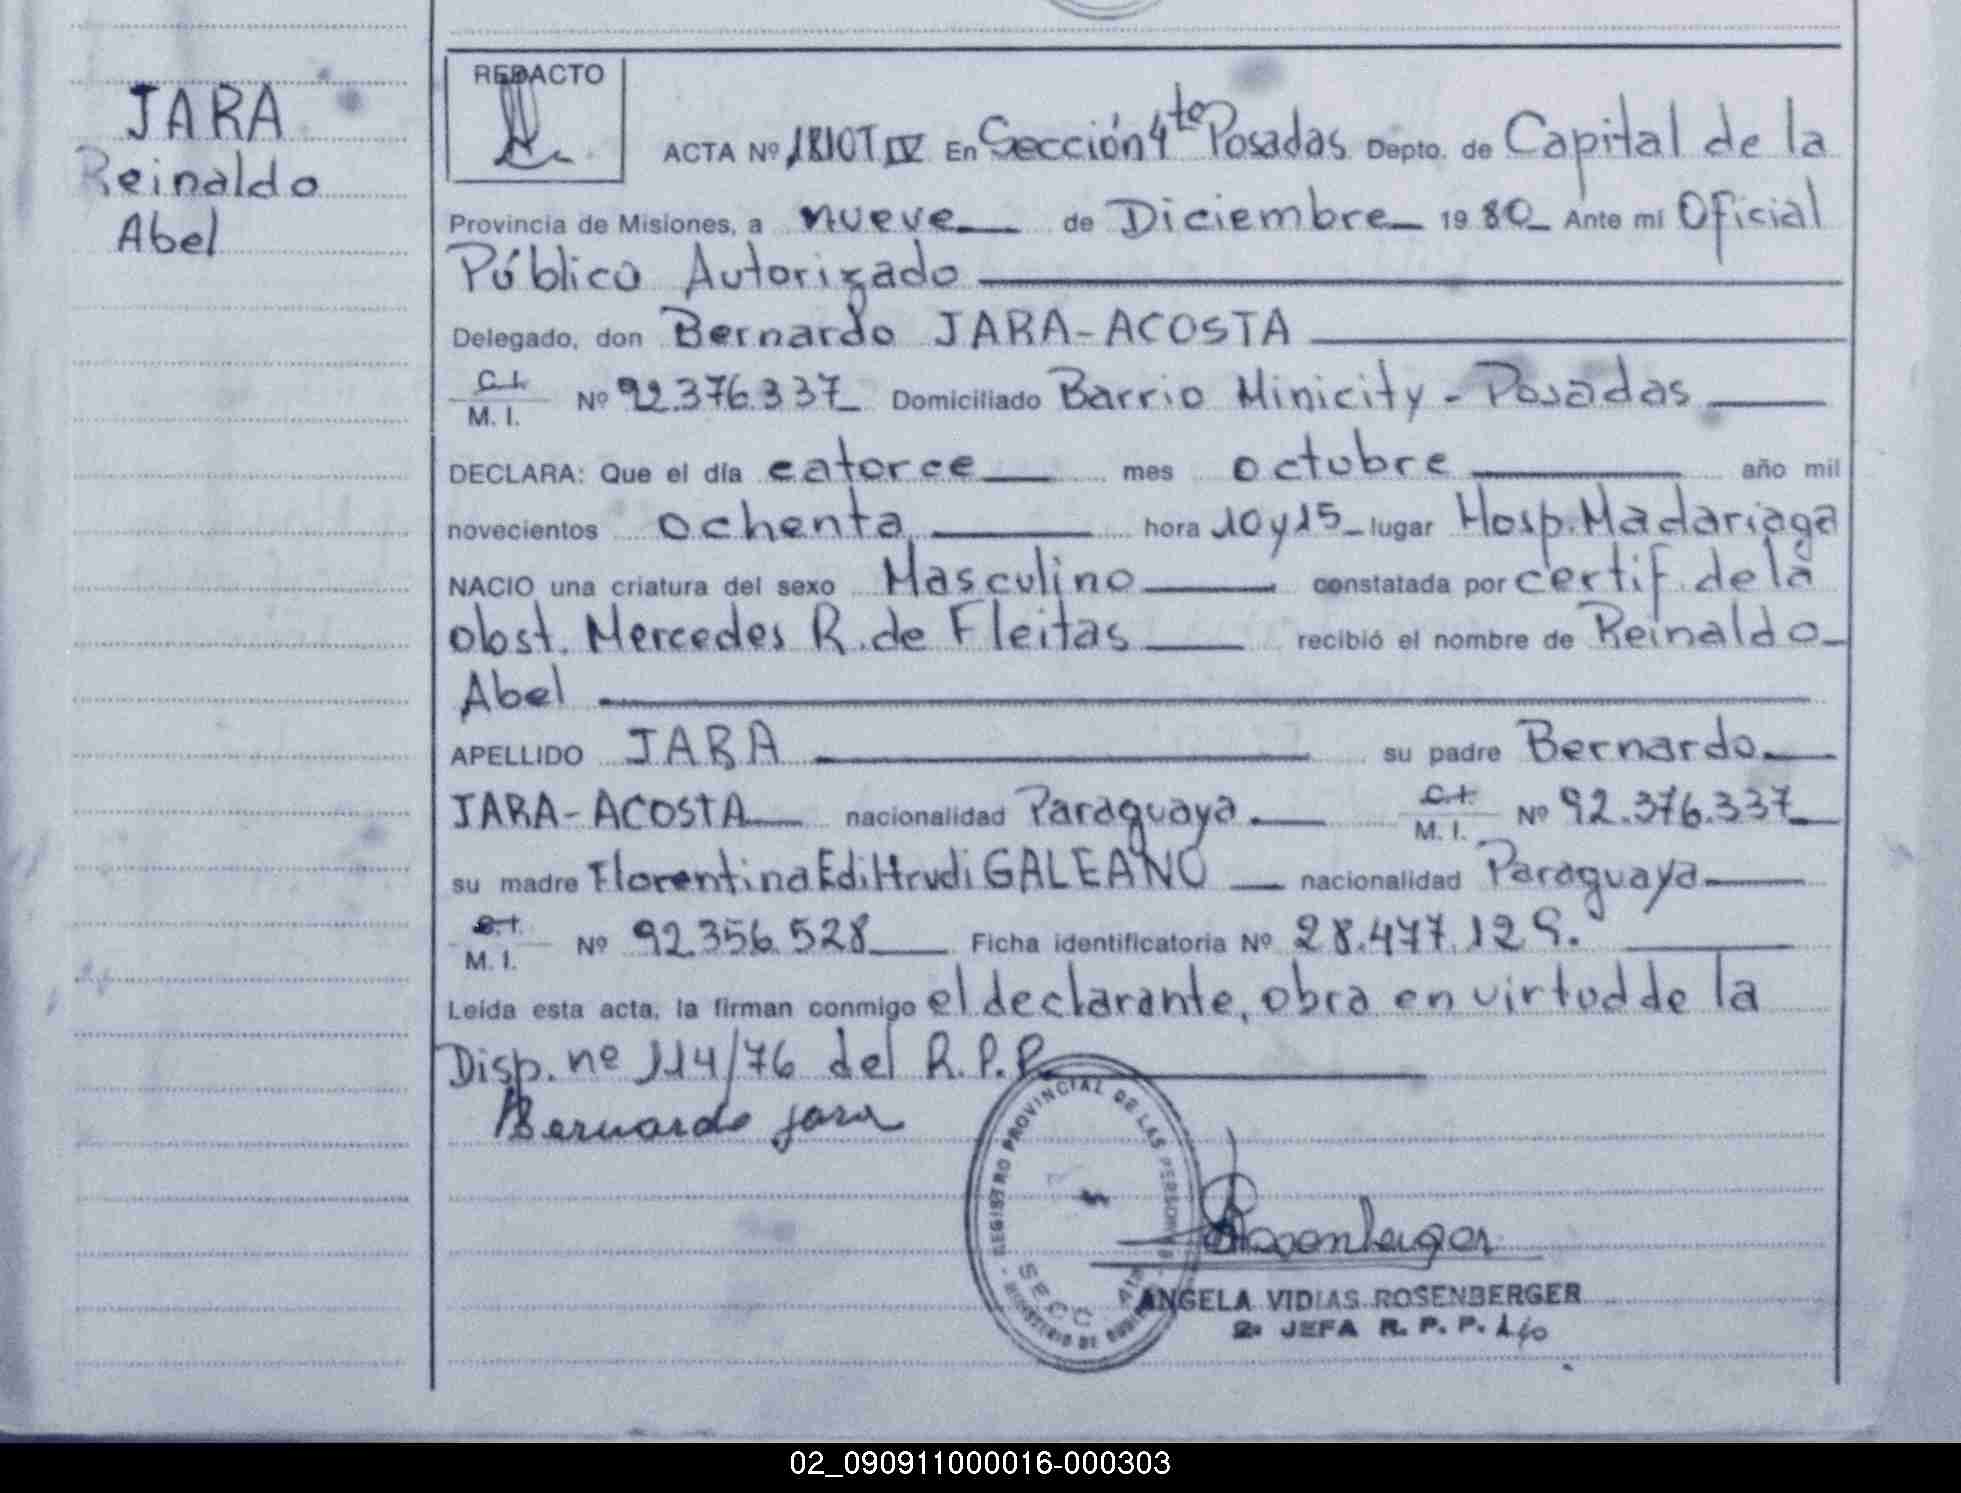 JARA
Reinaldo
Abel
REDACTO
ACTA Nº 1810 T IV En Sección 4ta Posadas Depto. de Capital de la
Provincia de Misiones, a nueve de Diciembre 1980 Ante mí Oficial
Público Autorizado
Delegado, don Bernardo JARA-ACOSTA
C.I.
M. I. Nº 92.376.337 Domiciliado Barrio Minicity - Posadas
DECLARA: Que el día catorce mes octubre año mil
novecientos ochenta hora 10 y 15 lugar Hosp. Madariaga
NACIO una criatura del sexo Masculino constatada por certif. de la
obst. Mercedes R. de Fleitas recibió el nombre de Reinaldo
Abel
APELLIDO JARA su padre Bernardo
JARA-ACOSTA nacionalidad Paraguaya C.I.
M. I. Nº 92.376.337
su madre Florentina Ediltrudi GALEANO nacionalidad Paraguaya
C.I.
M. I. Nº 92.356.528 Ficha identificatoria Nº 28.477.129.
Leída esta acta, la firman conmigo el declarante, obra en virtud de la
Disp. nº 114/76 del R.P.P.
Bernardo Jara
REGISTRO PROVINCIAL DE LAS PERSONAS
SECC. 4ta
MINISTERIO DE
Rosenberger
ANGELA VIDIAS ROSENBERGER
2ª JEFA R. P. P.
02_090911000016-000303